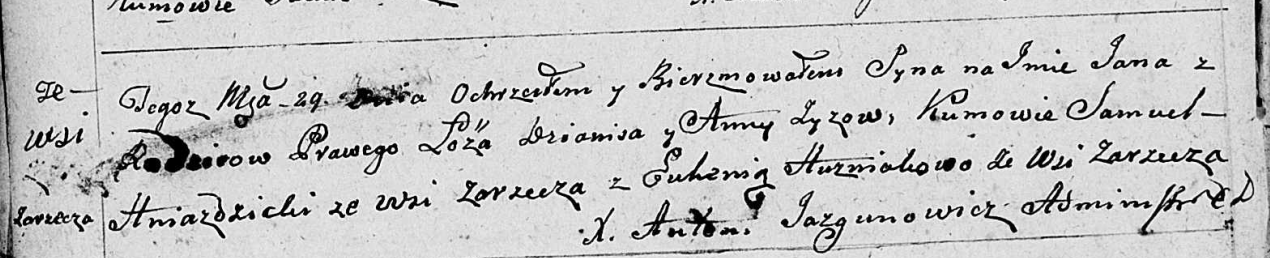 Kumowie
ze
wsi
Zarzecza
Tegoz Mҫa 29 Dnia Ochrzciłem y Bierzmowałem Syna na Imie Jana z
Rodzicow Prawego Łoża Dzianisa y Anny Łyzow, Kumowie Samuel
Hniazdzicki ze wsi Zarzecza z Euhenią Huzniakowo ze Wsi Zarzecza
X. Anton. Jazgunowicz Administr. C D